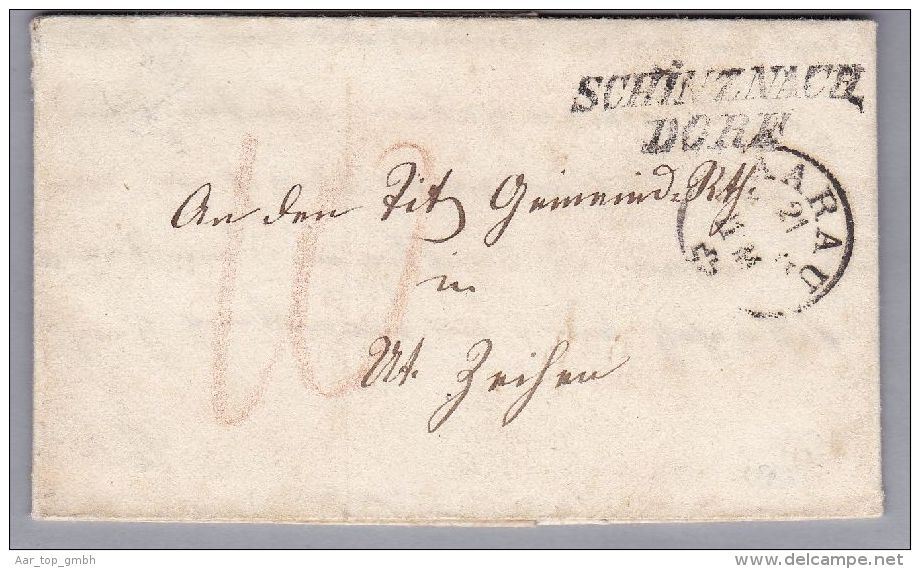 SCHINZNACH
DORF
AARAU
21
10
An den Tit. Gemeind-Rth.
in
Ut. Zeihen
Aar_top_gmbh
www.delcampe.net